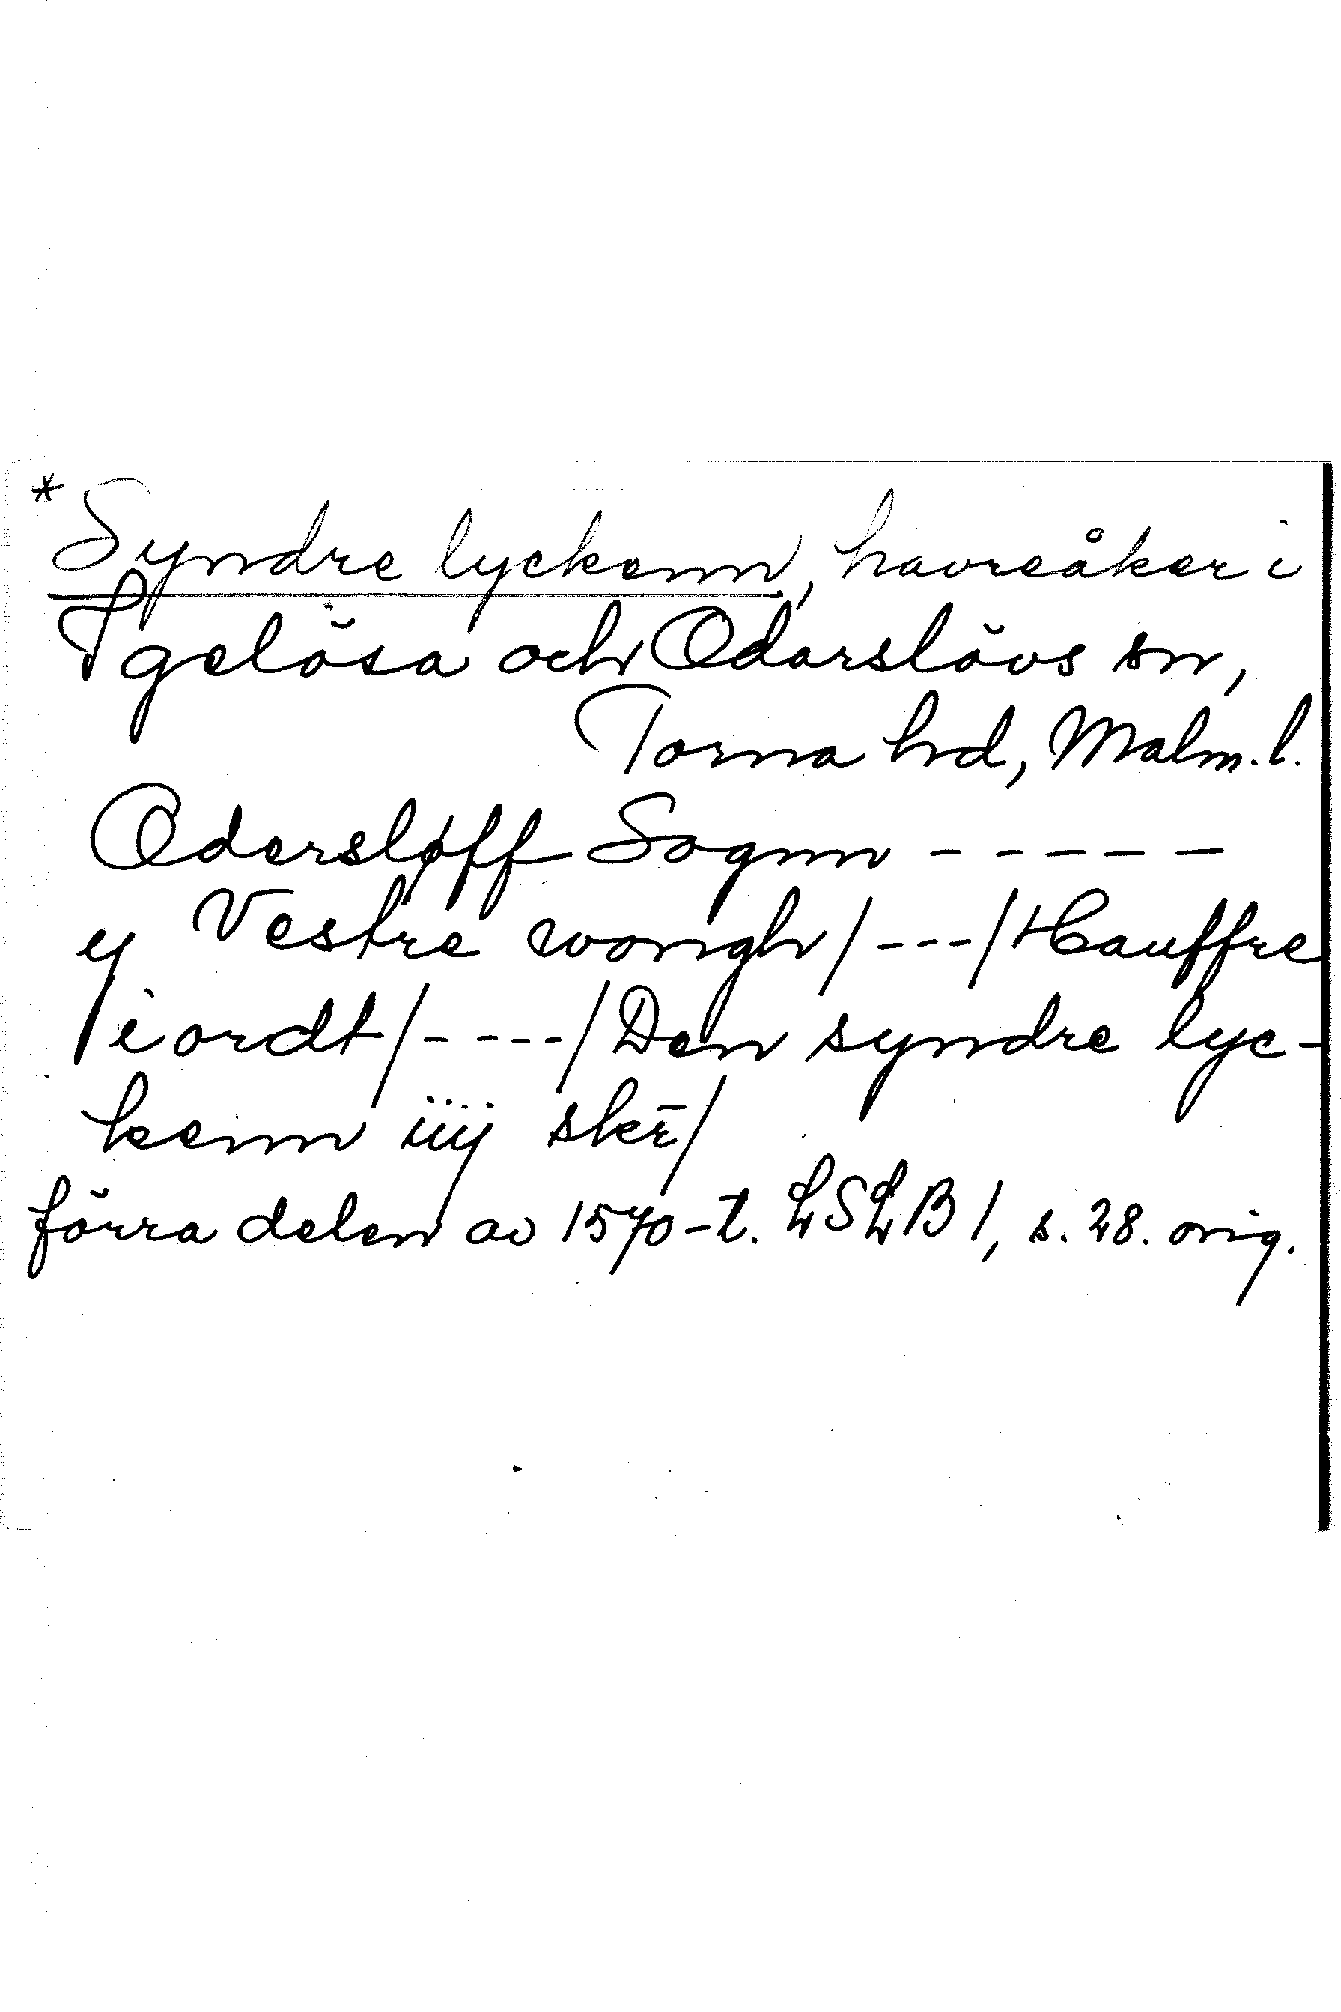 *Syndre lyckenn, havreåker i
Igelösa och Odarslövs sn,
Torna hd, Malm. l.
Odersløff Sognn - - - - -
y Vestre wongh/---/Hauffre
iordt/----/Den syndre lyc-
kenn iiij skē/
förra delen av 1570-t. LSLB 1, s. 28. orig.